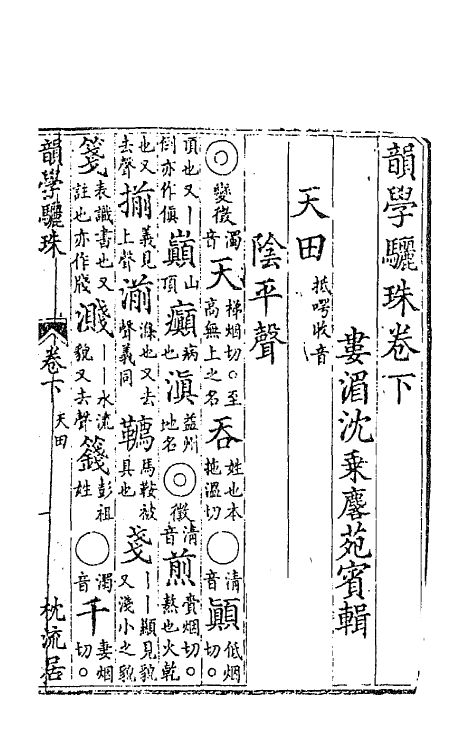 韻學驪珠卷下
婁湄沈乘麐苑賓輯
天田 抵喉收音
陰平聲
◎變徵濁音天梯烟切○至高無上之名吞姓也本拖溫切○清音顚低烟切○
頂也又丨倒亦作傎巓山頂癲病也滇益州地名◎徵清音煎賫烟切○熬也火乾
也又去聲揃義見上聲湔滌也又去聲義同韉馬鞍被具也戔丨丨顯見貌又淺小之貌
箋表識書也又註也亦作牋濺丨丨水流貌又去聲籛彭祖姓○濁音千妻烟切○
韻學驪珠 卷下 天田 一 枕流居